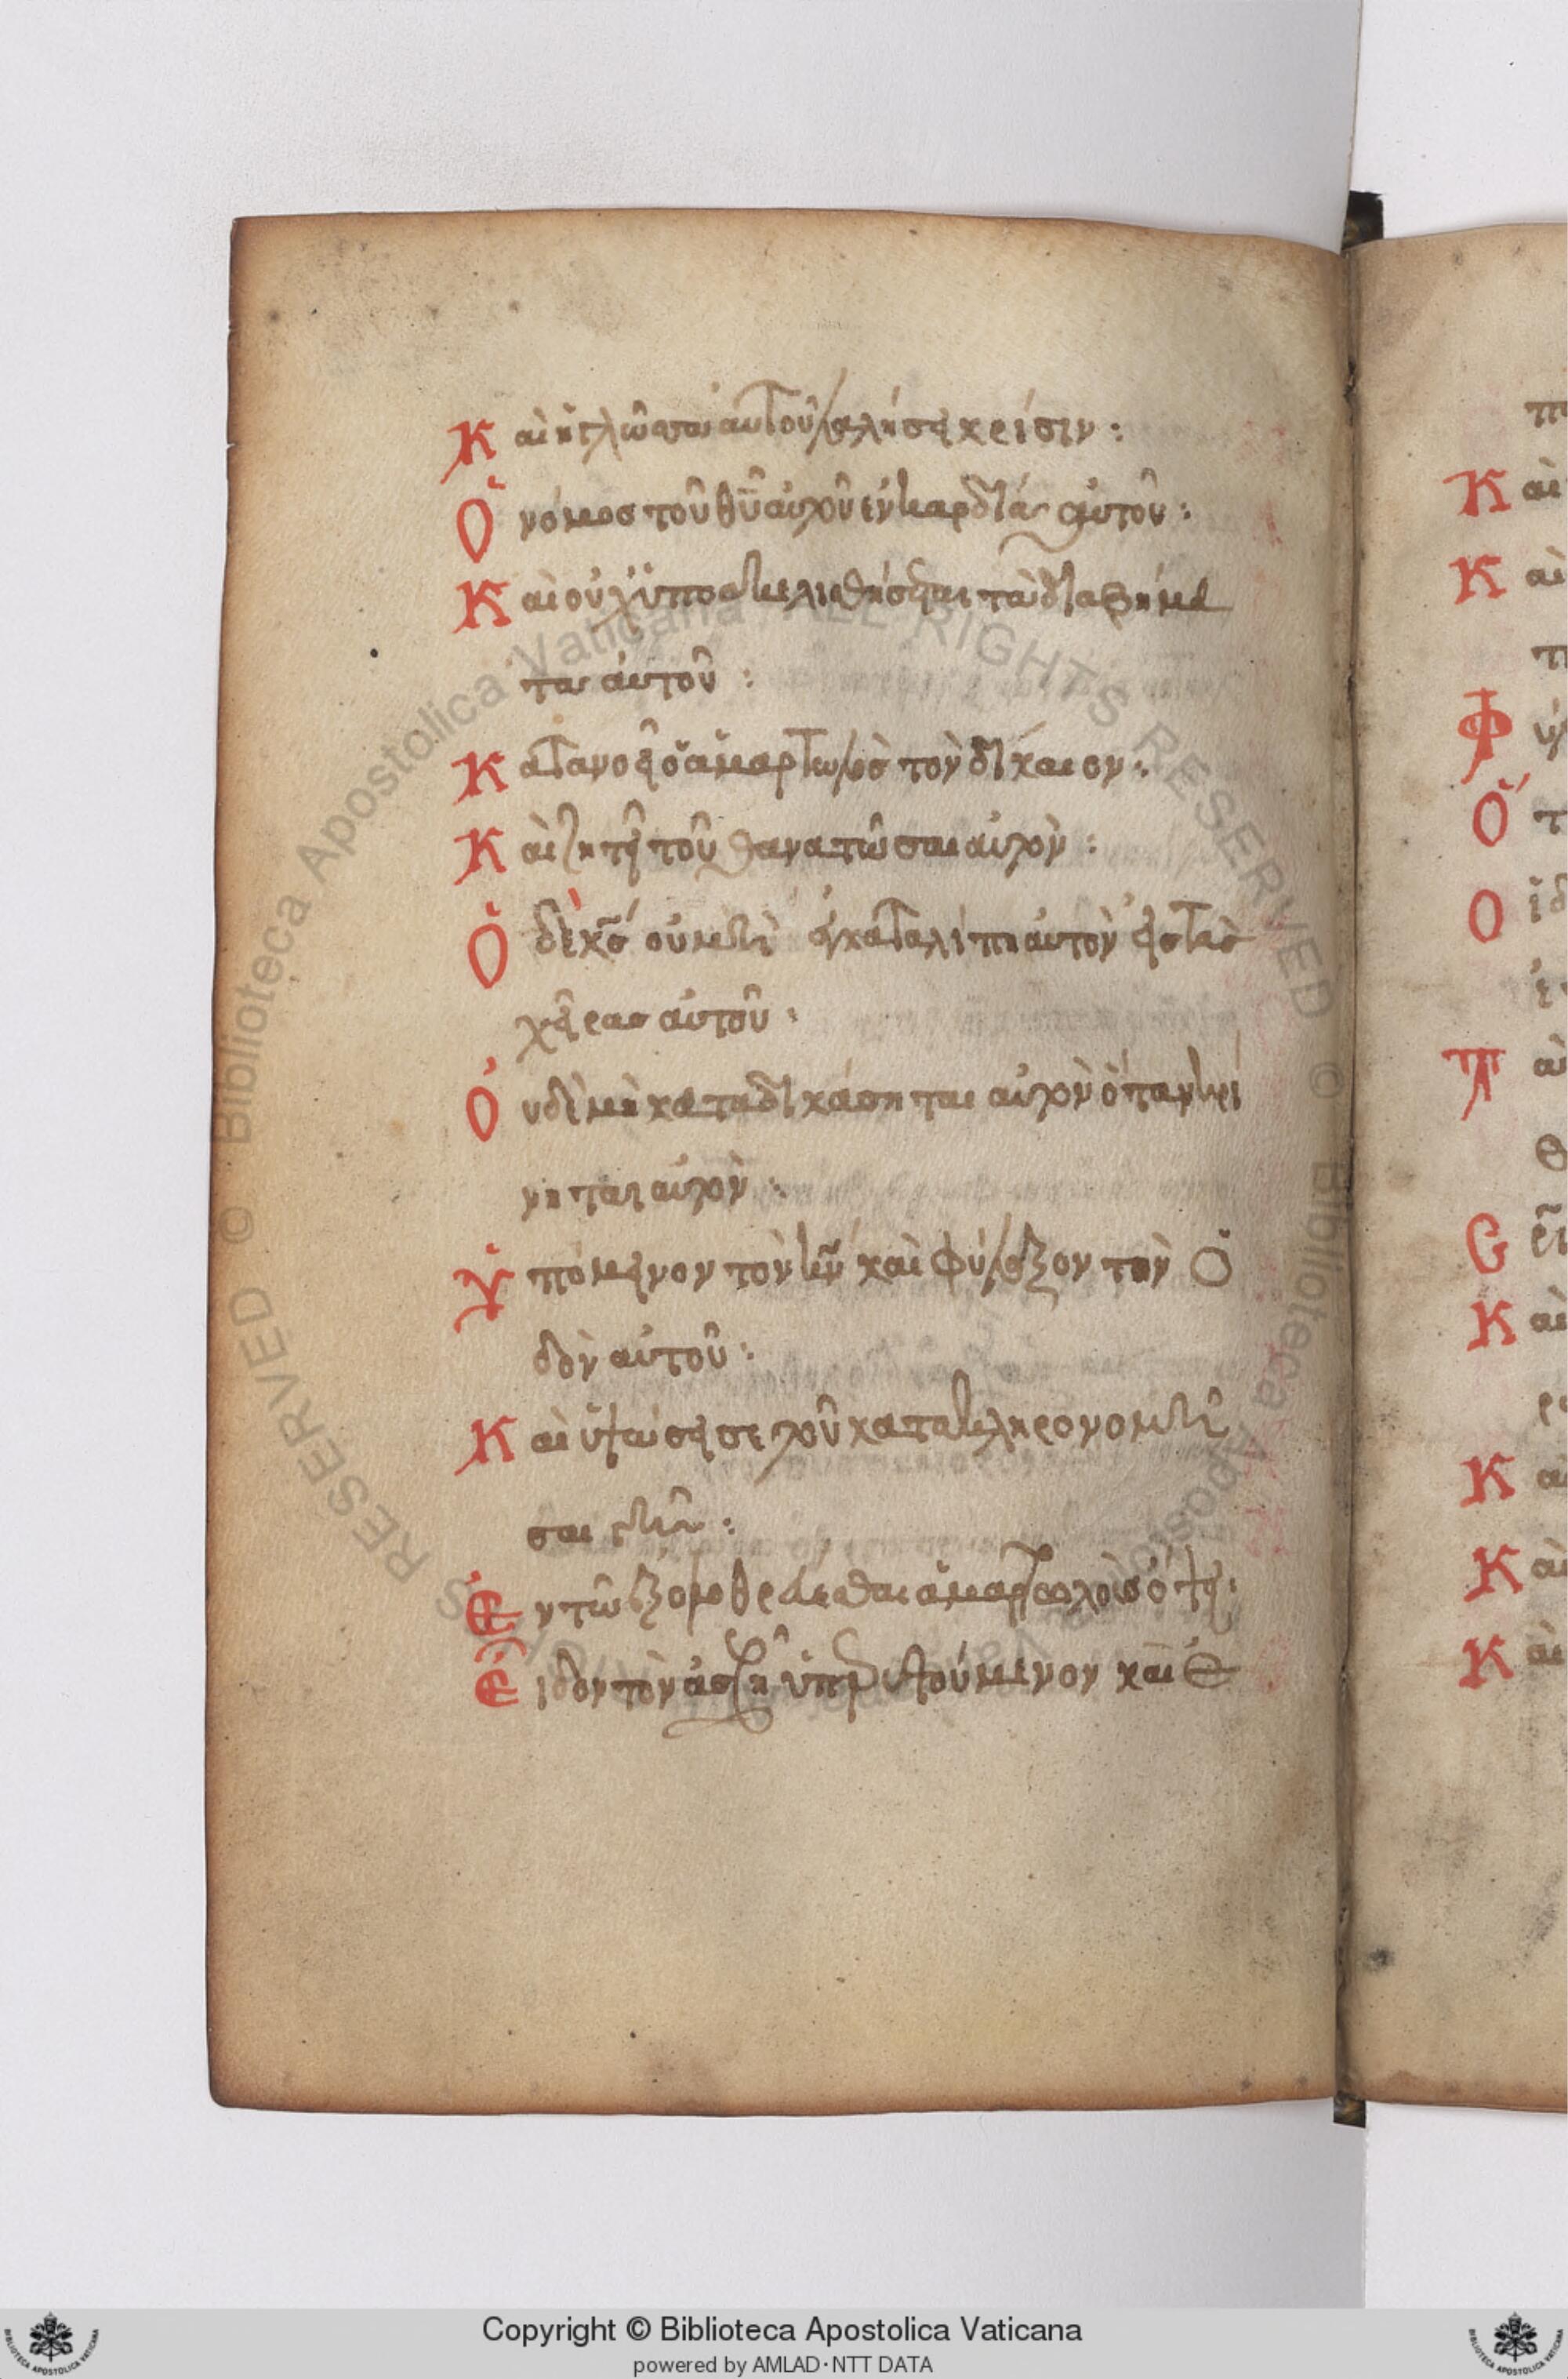 Καὶ ἡ γλῶσσα αὐτοῦ λαλήσει κρίσιν :
Ὁ νόμος τοῦ θῡ αὐτοῦ ἐν καρδία αὐτοῦ :
Καὶ οὐχ ὑποσκελισθήσεται τὰ διαβήμα
τα αὐτοῦ :
Κατανοεῖ ὁ ἁμαρτωλὸς τὸν δίκαιον :
Καὶ ζητεῖ τοῦ θανατῶσαι αὐτὸν :
Ὁ δὲ κς̄ οὐ μὴ ἐγκαταλίπη αὐτὸν εἰς τὰς
χεῖρας αὐτοῦ :
Οὐδὲ μὴ καταδικάσηται αὐτὸν ὅταν κρί
νηται αὐτὸν :
Ὑπόμεινον τὸν κν̄ καὶ φύλαξον τὴν ὁ
δὸν αὐτοῦ :
Καὶ ὑψώσει σε τοῦ κατακληρονομῆ
σαι γῆν :
Ἐν τῶ ἐξολοθρεύεσθαι ἁμαρτωλοὺς ὄψει :
Εἶδον τὸν ἀσεβῆ ὑπερυψούμενον καὶ ἐ
Κ αὶ
Κ αὶ
Φ ύ
Ὅ τ
Κ
Κ αὶ
Κ αὶ
Copyright © Biblioteca Apostolica Vaticana
powered by AMLAD·NTT DATA